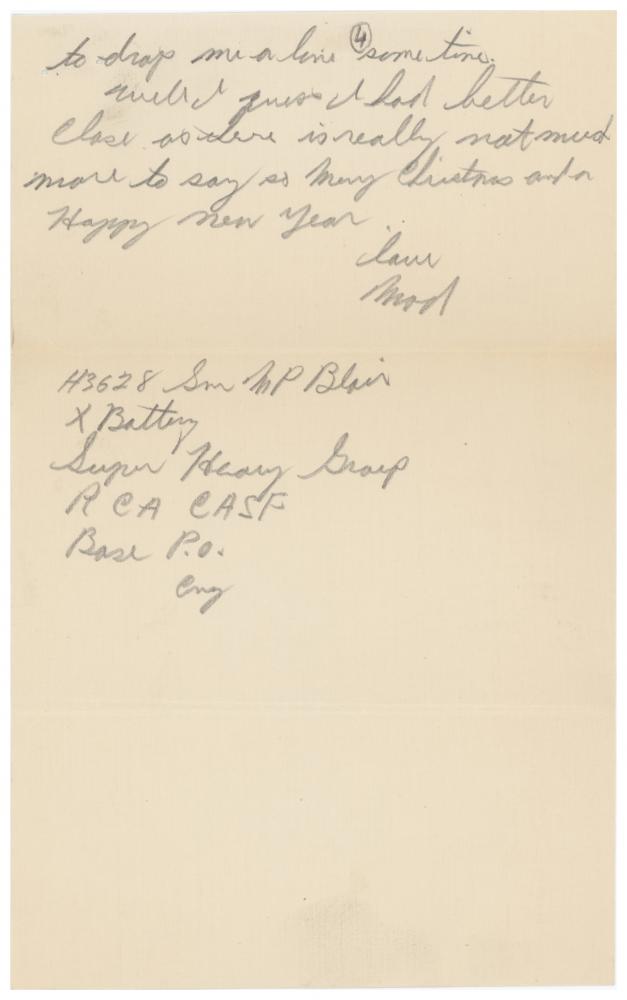 ④
to drop me a line some time.
Well I guess I had better
close as there is really not much
more to say so Merry Christmas and a
Happy New Year.
Love
H3628 Gnr M P Blair
X Battery
Super Heavy Group
R C A CASF
Base P.O.
Eng